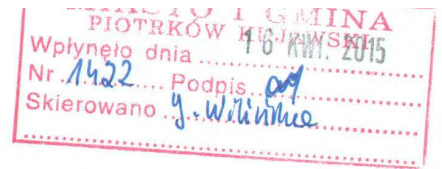 MIASTO I GMINA
PIOTRKÓW KUJAWSKI
Wpłynęło dnia 16 KWI. 2015
Nr 1422 Podpis
Skierowano